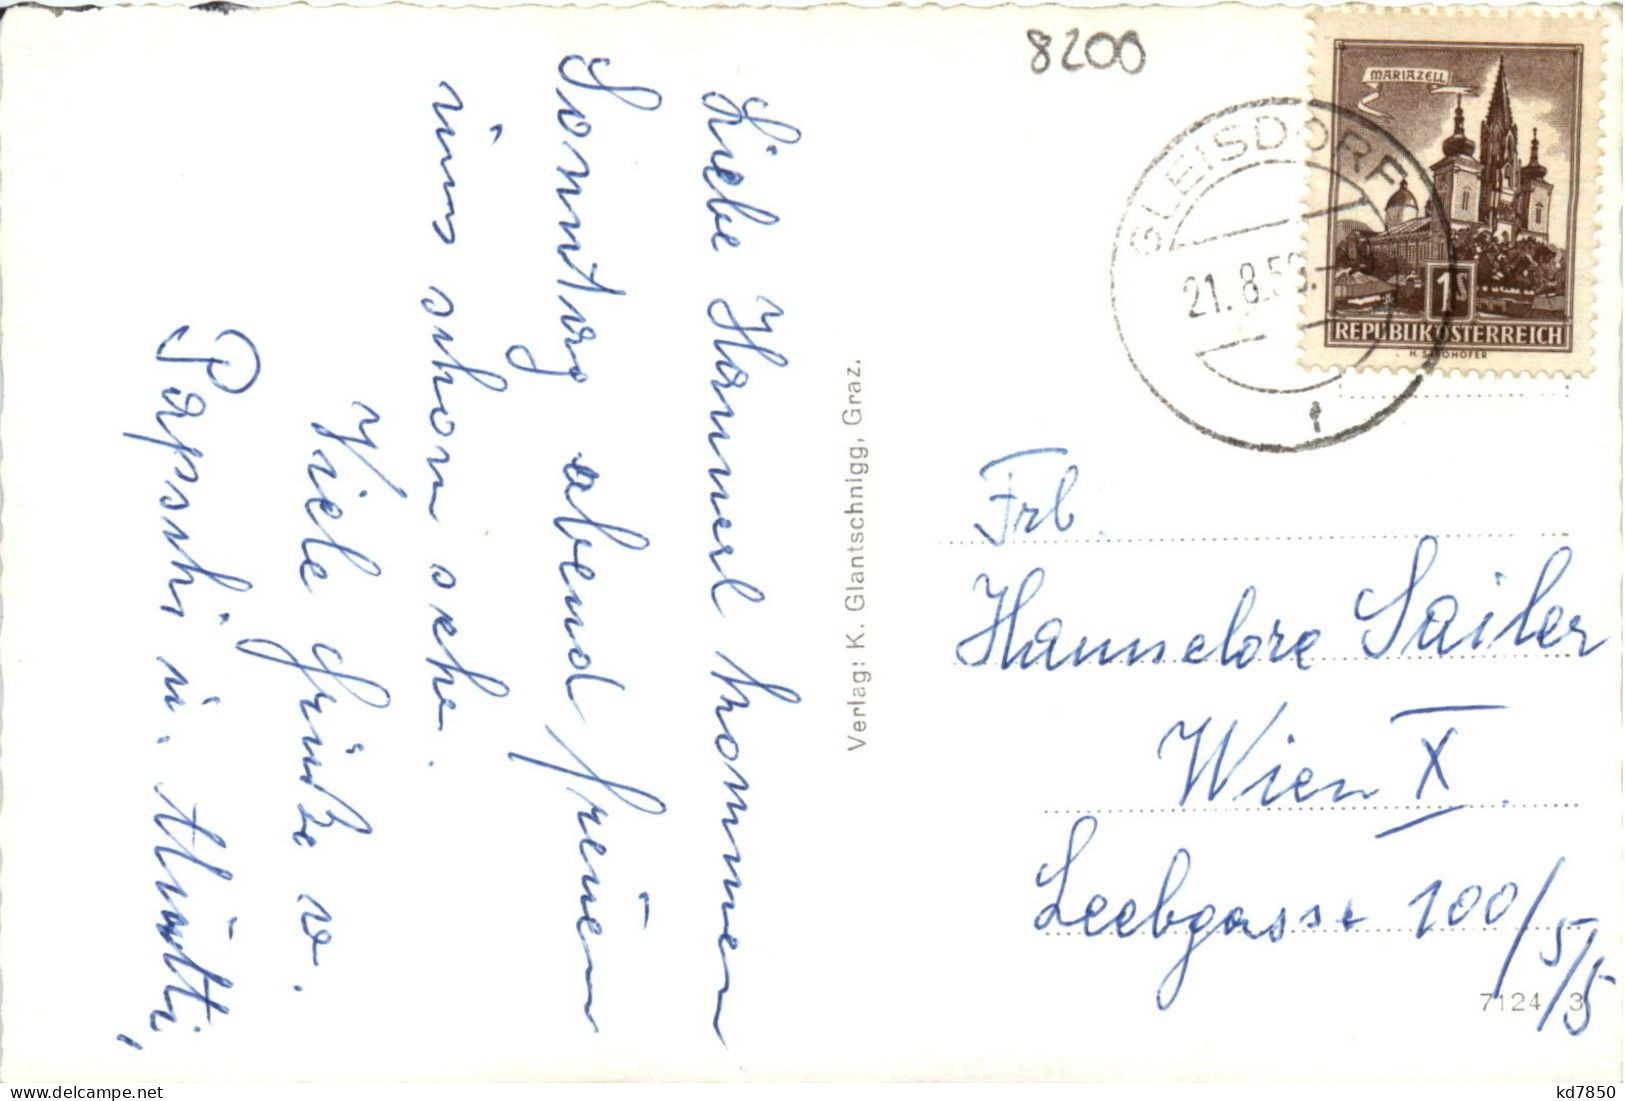 8200
MARIAZELL
GLEISDORF
21. 8.58.
1
1S
REPUBLIK ÖSTERREICH
H. STROHOFER
Liebe Hannerl kommen
Sonntag abend freuen
uns schon sehr.
Viele Grüße v.
Papschi u. Mutti,
Verlag: K. Glantschnigg, Graz.
Frl.
Hannelore Sailer
Wien X.
Leebgasse 100/5/5
7124 3
kd7850